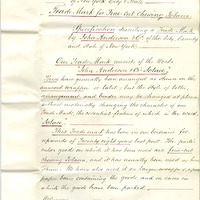 of New York City & State
Trade Mark for Fine-Cut Chewing Tobacco.
Specification describing a Trade Mark
by John Anderson & Co of the City, County
and State of New York.
Our Trade Mark consists of the Words
John Anderson & Co Solace,
These have generally been arranged as shown on the
annexed wrapper or label; but the style of letter,
arrangement, and border may be changed at pleas
without materially changing the character of our
Trade Mark, the essential feature of which is the word
Solace.
This Trade mark has been in our business for
upwards of Twenty eight years last past. The partic-
ular goods on which it is been used are fine-cut
chewing tobacco, and it has usually been used on
We have also used it on larger wrappers
paper bags containing the goods, and on cases in
which the goods have been packed.